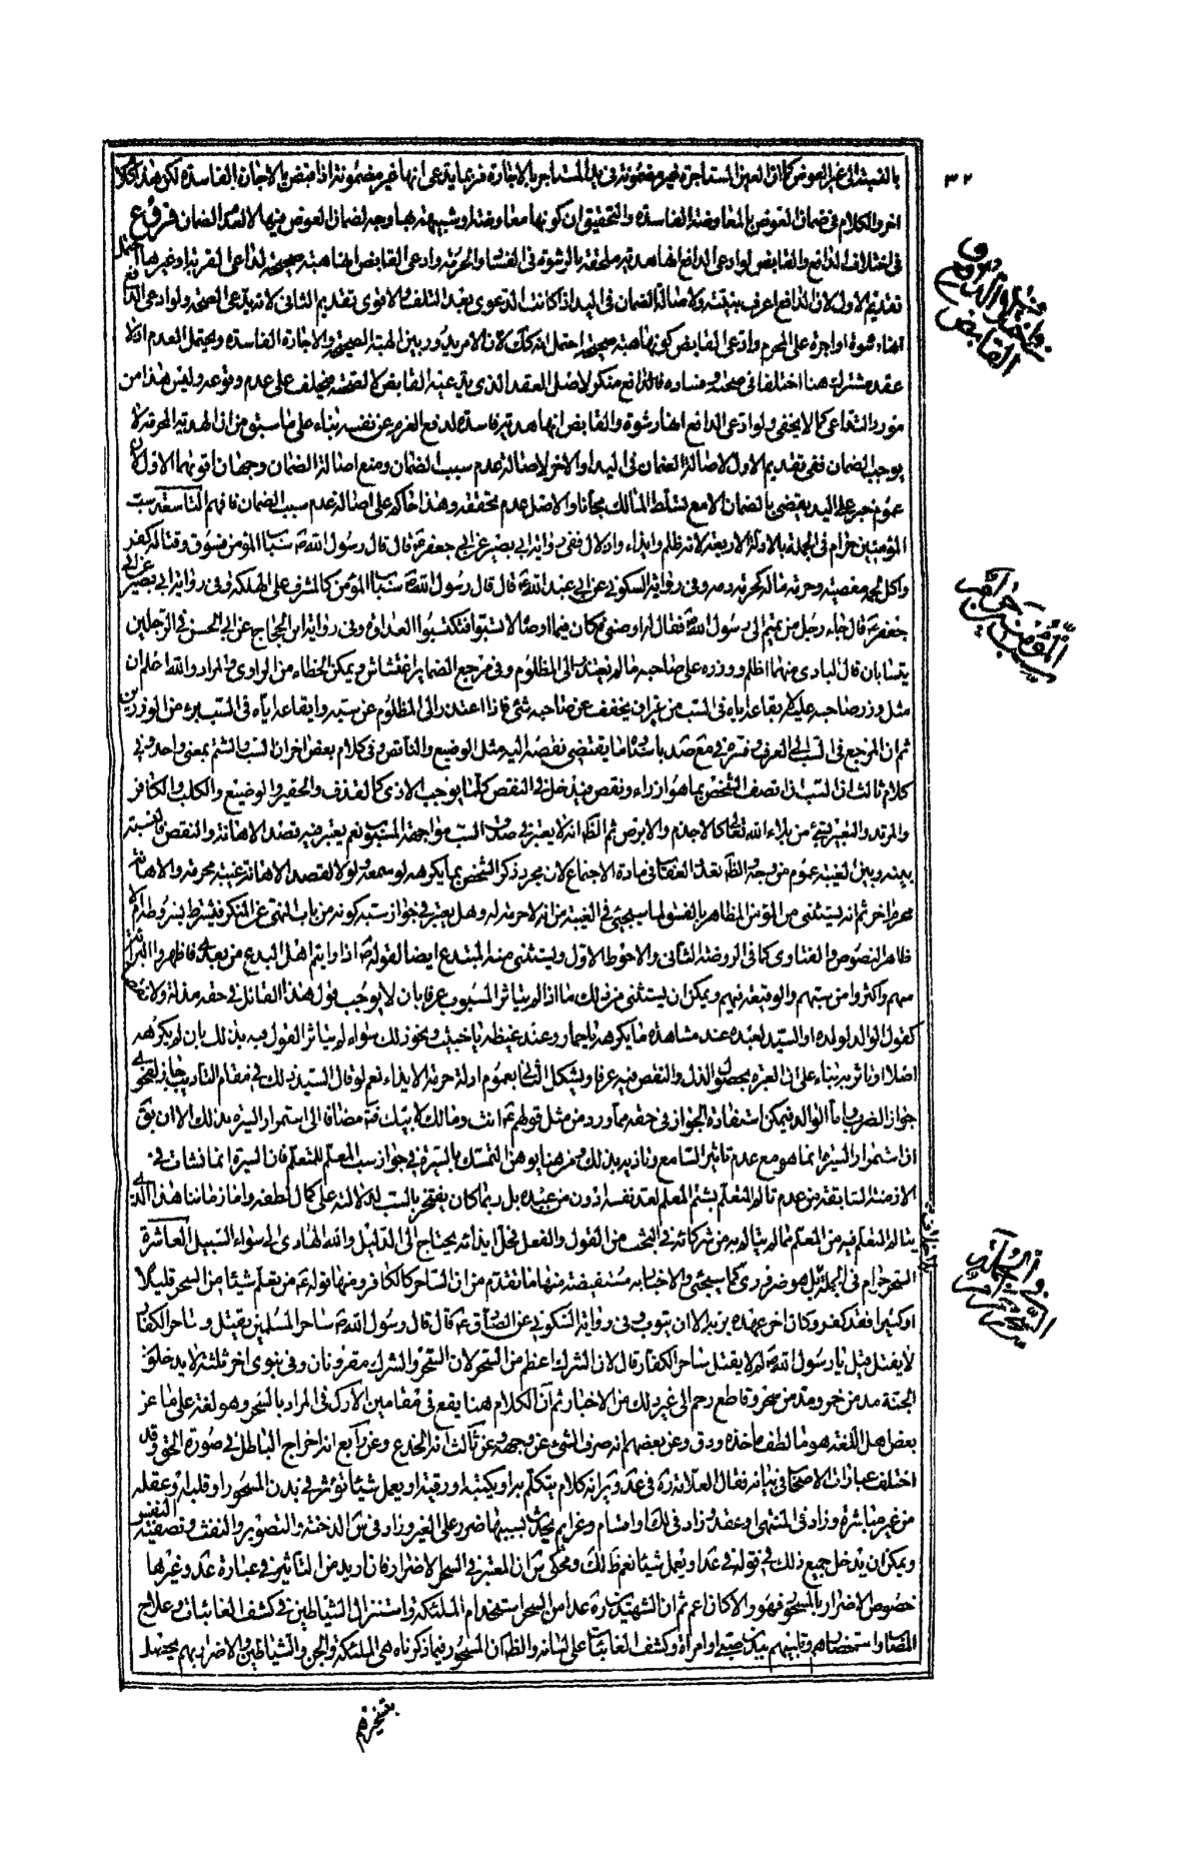 ٣٢
بالنسبة الى غير العوض كما ان العين المستاجرة غير مضمونة في يد المستاجر بالاجارة فربما يدعى انها غير مضمونة اذا قبض بالاجارة الفاسدة لكن هذا كلام
اخر والكلام في ضمان العوض بالمعاوضة الفاسدة والتحقيق ان كونها معاوضة او شبيهة بها وجه لضمان العوض فيها لا لعدم الضمان فروع
في اختلاف الدافع والقابض لو ادعى الدافع انها هدية ملحقة بالرشوة في الفساد والحرمة وادعى القابض انها هبة صحيحة لداعى القربة او غيرها احتمل
تقديم الاول لان الدافع اعرف بنيته ولاصالة الضمان في اليد اذا كانت الدعوى بعد التلف والاقوى تقديم الثانى لانه يدعى الصحة ولو ادعى الدافع
انها رشوة او اجرة على المحرم وادعى القابض كونها هبة صحيحة احتمل انه كك لان الامر يدور بين الهبة الصحيحة والاجارة الفاسدة ويحتمل العدم اذ لا
عقد مشترك هنا اختلفا في صحته وفساده فالدافع منكر لاصل العقد الذى يدعيه القابض لا لصحته فيحلف على عدم وقوعه وليس هذا من
مورد التداعى كما لا يخفى ولو ادعى الدافع انها رشوة والقابض انها هدية فاسدة لدفع الغرم عن نفسه بناء على ما سبق من ان الهدية المحرمة لا
يوجب الضمان ففى تقديم الاول لاصالة الضمان في اليد او الاخر لاصالة عدم سبب الضمان ومنع اصالة الضمان وجهان اقويهما الاول لان
عموم خبر على اليد يقضى بالضمان الا مع تسلط المالك مجانا والاصل عدم تحققه وهذا حاكم على اصالة عدم سبب الضمان فافهم التاسعة سب
المؤمنين حرام في الجملة بالادلة الاربعة لانه ظلم وايذاء واذلال ففى رواية ابى بصير عن ابى جعفر ع قال قال رسول الله ص سباب المؤمن فسوق وقتاله كفر
واكل لحمه معصية وحرمة ماله كحرمة دمه وفى رواية السكونى عن ابى عبد الله ع قال قال رسول الله ص سباب المؤمن كالمشرف على الهلكة وفى رواية ابى بصير عن ابى
جعفر ع قال جاء رجل من تميم الى رسول الله ص فقال له اوصنى فكان فيما اوصاه لا تسبوا فتكتسبوا العداوة وفى رواية ابن الحجاج عن ابى الحسن في الرجلين
يتسابان قال البادى منهما اظلم ووزره على صاحبه ما لم يعتذر الى المظلوم وفى مرجع الضماير اغتشاش ويمكن الخطاء من الراوى والمراد والله اعلم ان
مثل وزر صاحبه عليه لايقاعه اياه في السب من غير ان يخفف عن صاحبه شئ فاذا اعتذر الى المظلوم عن سبه وايقاعه اياه في السب برئ من الوزرين
ثم ان المرجع في السب الى العرف وفسره في مع صد باسناد ما يقتضى نقصه اليه مثل الوضيع والناقص وفى كلام بعض اخر ان السب والشتم بمعنى واحد وفى
كلام ثالث ان السب ان تصف الشخص بما هو ازراء ونقص فيدخل في النقص كلما يوجب الاذى كالقذف والحقير والوضيع والكلب والكافر
والمرتد والتعبير بشئ من بلاء الله تعالى كالاجذم والابرص ثم الظ انه لا يعتبر في صدق السب مواجهة المسبوب نعم يعتبر فيه قصد الاهانة والنقص فالنسبة
بينه وبين الغيبة عموم من وجه والظ تعدد العقاب في مادة الاجتماع لان مجرد ذكر الشخص بما يكرهه لو سمعه ولو لا لقصد الاهانة غيبة محرمة والاهانة
محرم اخر ثم انه يستثنى من المؤمن المظاهر بالفسق لما سيجئ في الغيبة من انه لا حرمة له وهل يعتبر في جواز سبه كونه من باب النهى عن المنكر فيشترط بشروطه ام لا
ظاهر النصوص والفتاوى كما في الروضة الثانى والاحوط الاول ويستثنى منه المبتدع ايضا لقوله ص اذا رايتم اهل البدع من بعدى فاظهروا البراءة
منهم واكثروا من سبهم والوقيعة فيهم ويمكن ان يستثنى من ذلك ما اذا لم يتاثر المسبوب عرفا بان لا يوجب قول هذا القائل في حقه مذلة ولا نقصا
كقول الوالد لولده او السيد لعبده عند مشاهدة ما يكرهه يا حمار وعند غيظه يا خبيث ونحو ذلك سواء لم يتاثر المقول فيه بذلك بان لم يكرهه
اصلا او تاثر به بناء على ان العبرة بحصول الذل والنقص فيه عرفا ويشكل الثانى بعموم ادلة حرمة الايذاء نعم لو قال السيد ذلك في مقام التاديب جاز لفحوى
جواز الضرب واما الوالد فيمكن استفادة الجواز في حقه مما ورد من مثل قولهم ع انت ومالك لابيك فتا مضافا الى استمرار السيرة بذلك الا ان يقال
ان استمرار السيرة انما هو مع عدم تاثير السامع وتاذيه بذلك ومن هنا يوهن التمسك بالسيرة في جواز سب المعلم للمتعلم فان السيرة انما نشات في
الازمنة السابقة من عدم تالم المتعلم بشتم المعلم لعد نفسه ادون من عبده بل ربما كان يفتخر بالسب لدلالته على كمال لطفه واما زماننا هذا الذى
يتالم المتعلم فيه من المعلم مما لم يتالم به من شركائه في البحث من القول والفعل فحل ايذائه يحتاج الى الدليل والله الهادى الى سواء السبيل العاشرة
السحر حرام في الجملة بل هو ضرورى كما سيجئ والاخبار به مستفيضة منها ما تقدم من ان الساحر كالكافر ومنها قوله ع من تعلم شيئا من السحر قليلا
او كثيرا فقد كفر وكان اخر عهده بربه الا ان يتوب وفى رواية السكونى عن الصادق ع قال قال رسول الله ص ساحر المسلمين يقتل وساحر الكفار
لا يقتل قيل يا رسول الله ص لم لا يقتل ساحر الكفار قال لان الشرك اعظم من السحر لان السحر والشرك مقرونان وفى نبوى اخر ثلثة لا يدخلون
الجنة مدمن خمر ومدمن سحر وقاطع رحم الى غير ذلك من الاخبار ثم ان الكلام هنا يقع في مقامين الاول في المراد بالسحر وهو لغة على ما عن
بعض اهل اللغة هو ما لطف ماخذه ودق وعن بعضهم انه صرف الشئ عن وجهه وعن ثالث انه الخدع وعن رابع انه اخراج الباطل في صورة الحق وقد
اختلف عبارات الاصحاب في بيانه فقال العلامة ره في عد وير انه كلام يتكلم به او يكتبه او رقية او يعمل شيئا تؤثر في بدن المسحور او قلبه او عقله
من غير مباشرة وزاد في المنتهى او عقد وزاد في لك او اقسام وعزايم يحدث بسببها ضرر على الغير وزاد في س الدخنة والتصوير والنفث وتصفية النفس
ويمكن ان يدخل جميع ذلك في قوله في عد او يعمل شيئا نعم ظ لك ومحكى س ان المعتبر في السحر الاضرار فان اريد من التاثير في عبارة عد وغيرها
خصوص الاضرار بالمسحور فهو والا كان اعم ثم ان الشهيدين ره عدا من السحر استخدام الملئكة واستنزال الشياطين في كشف الغائبات وعلاج
المصاب واستحضارهم وتلبيسهم ببدن صبى او امراة وكشف الغائبات على لسانه والظ ان المسحور فيما ذكراه هى الملئكة والجن والشياطين والاضرار بهم يحصل
بتسخيرهم
في اختلاف الدافع والقابض
سب المؤمنين حرام
في السحر حرام في الجملة